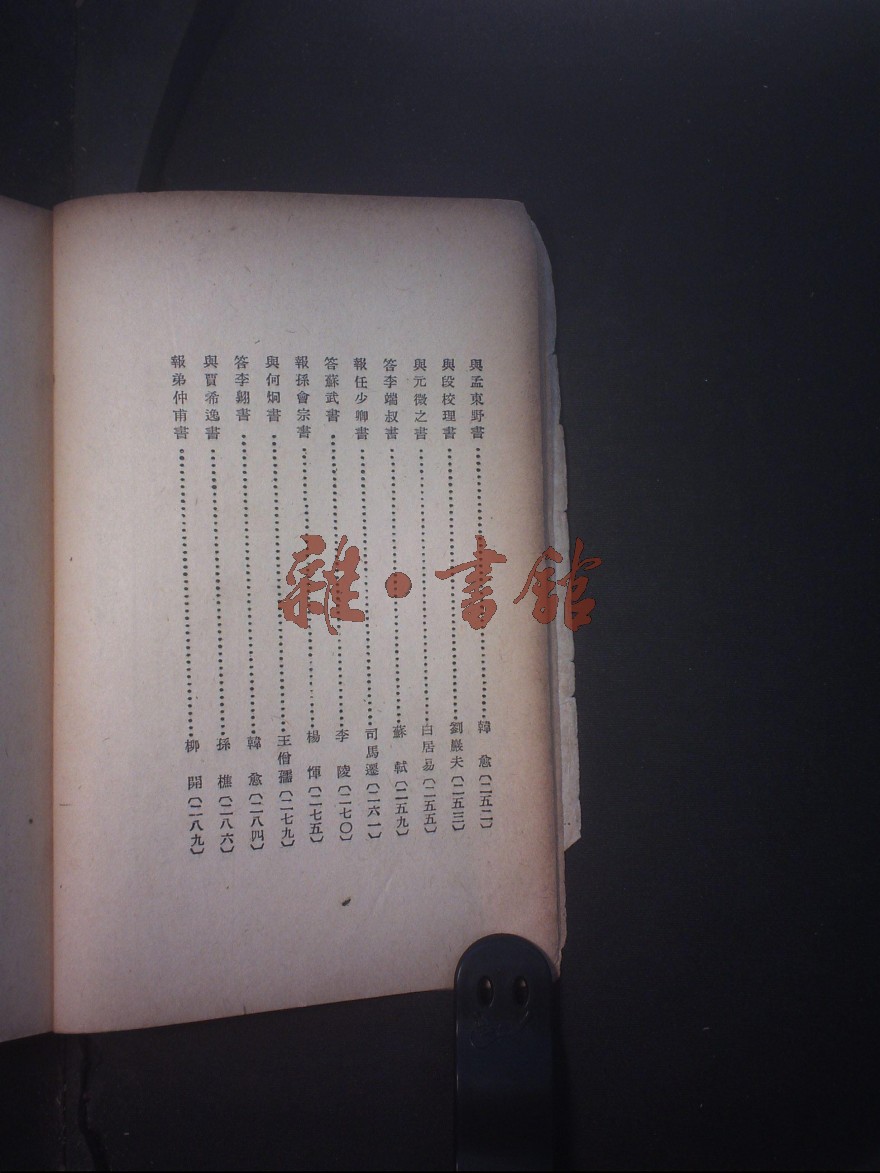 與孟東野書……韓愈(二五二)
與段校理書……劉巖夫(二五三)
與元微之書……白居易(二五五)
答李端叔書……蘇軾(二五九)
報任少卿書……司馬遷(二六一)
答蘇武書……李陵(二七〇)
報孫會宗書……楊惲(二七五)
與何炯書……王僧孺(二七九)
答李翱書……韓愈(二八四)
與賈希逸書……孫樵(二八六)
報弟仲甫書……柳開(二八九)
雜·書館